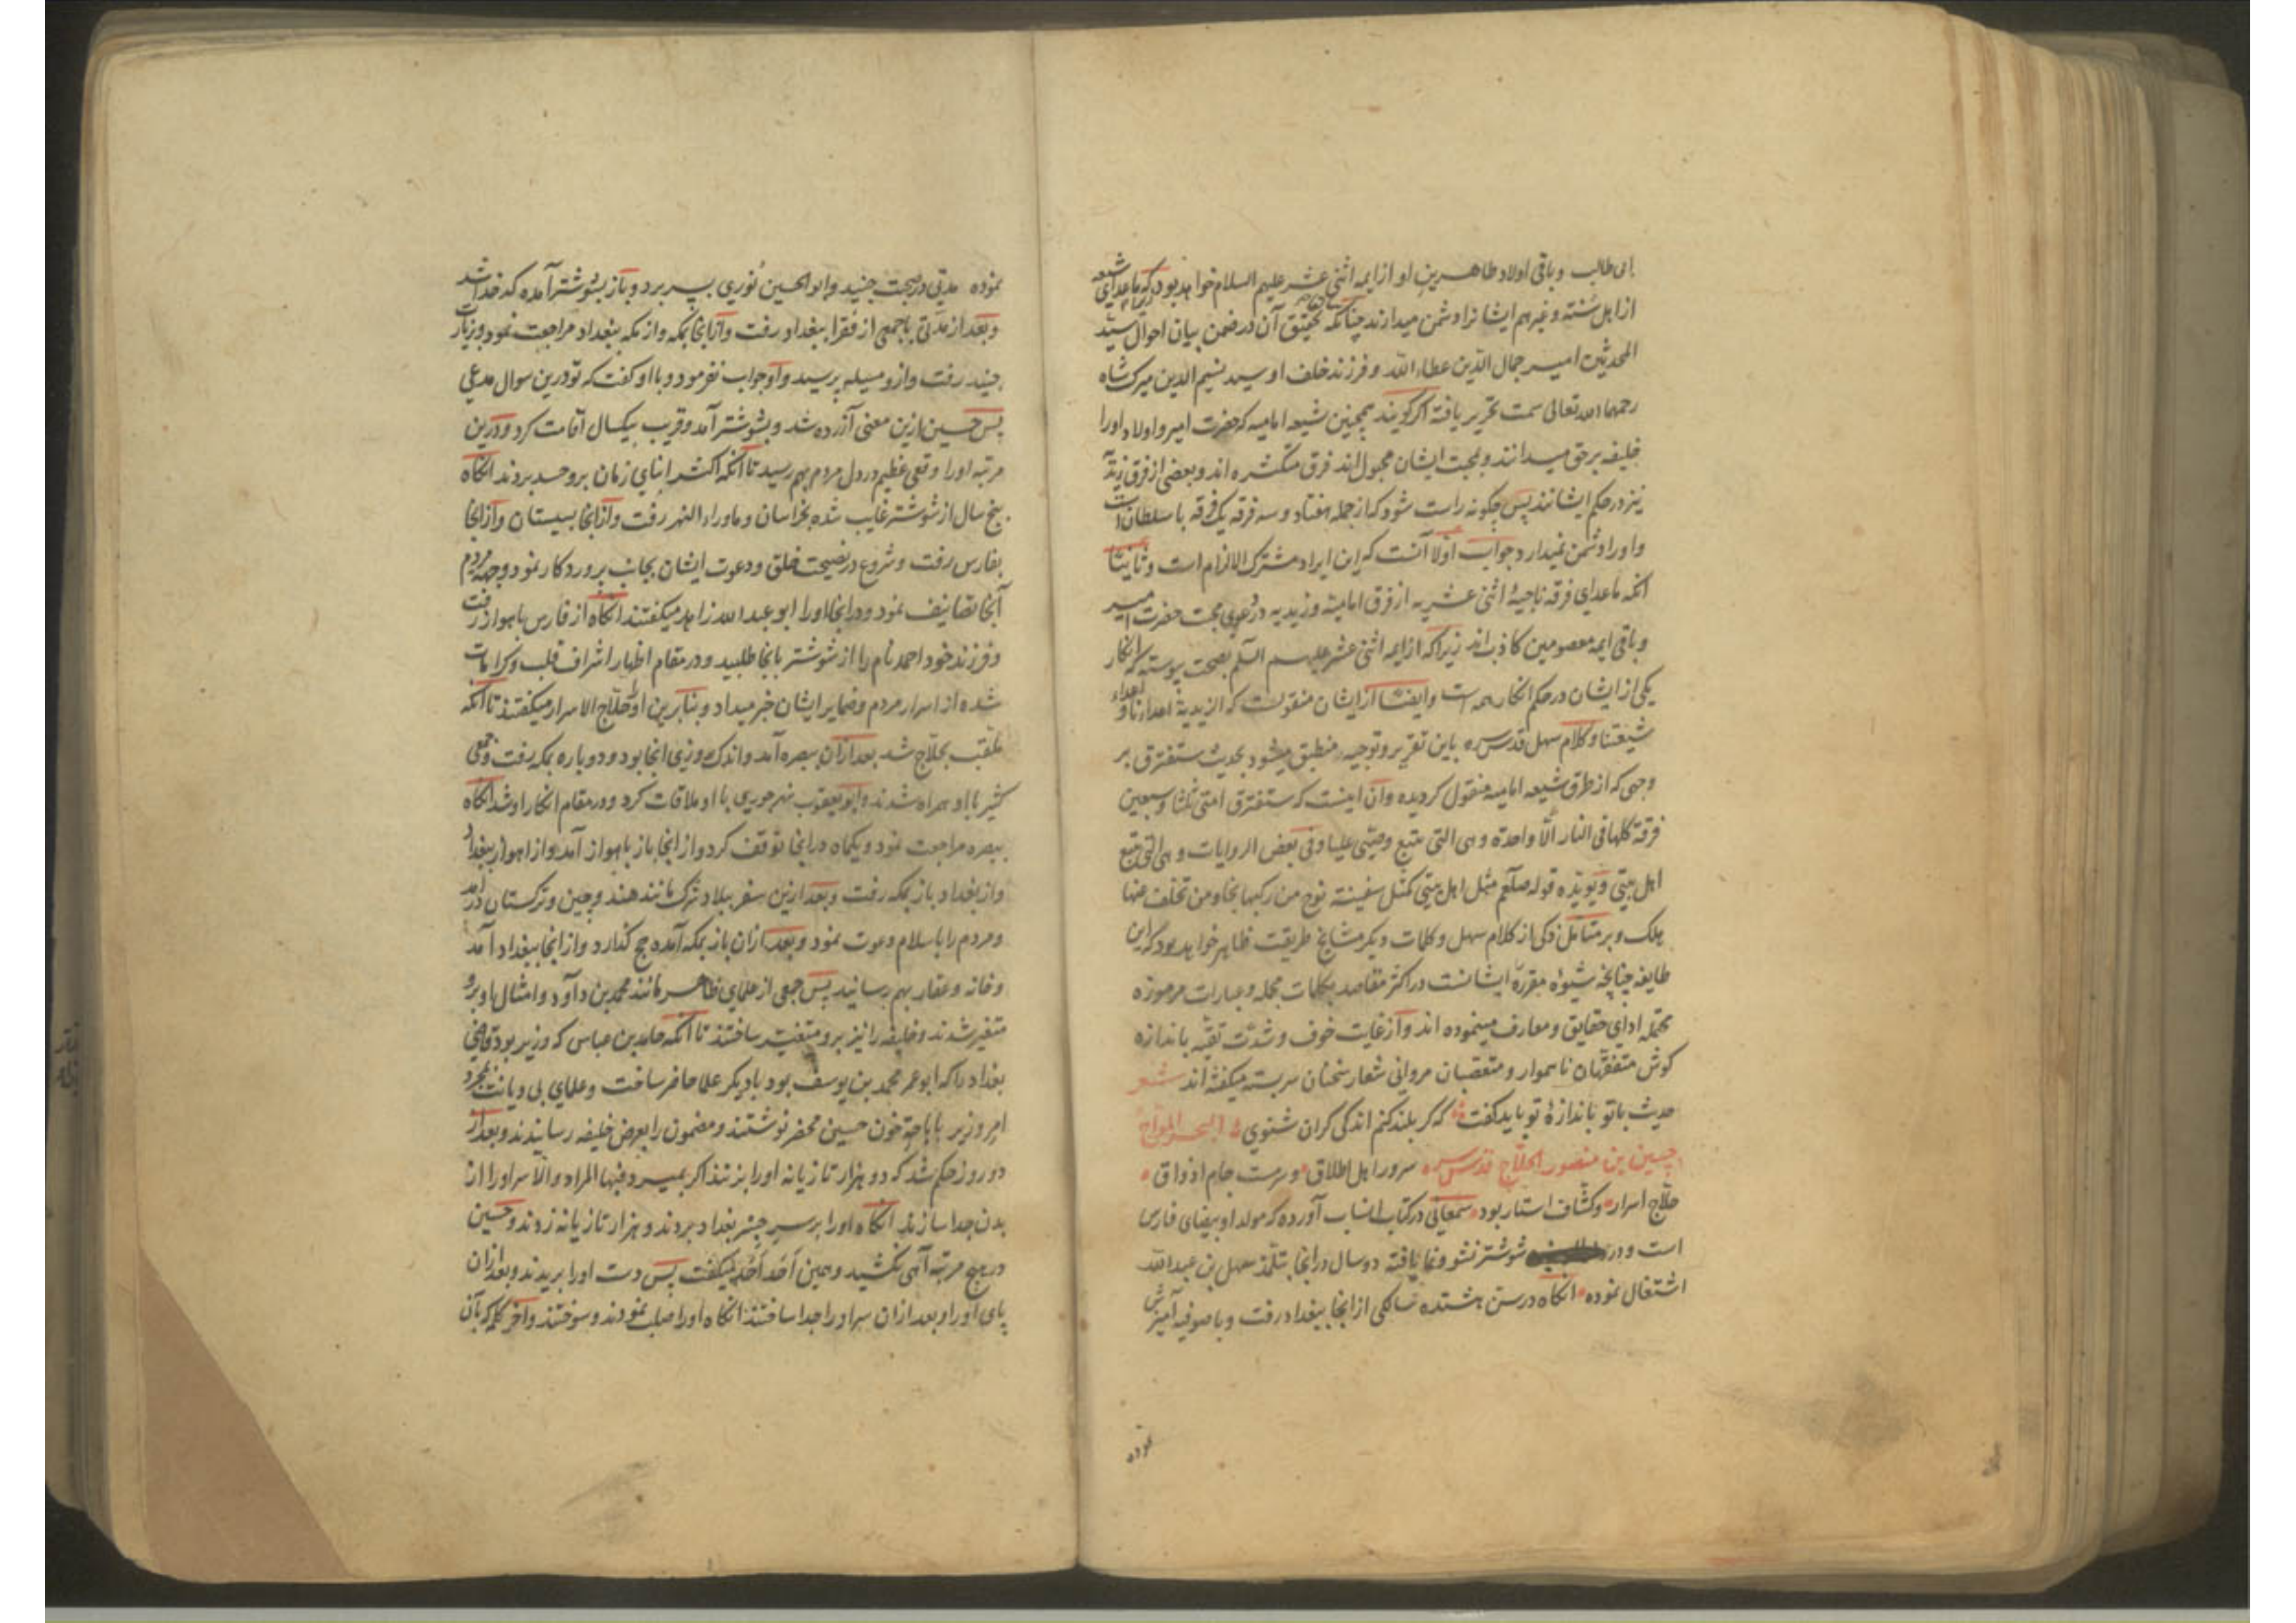 ابی طالب و باقی اولاد طاهرین او از ایمه اثنی عشر علیهم السلام خواهد بود که ماعدای شیعه
از اهل سنّته و غیرهم ایشانرا دشمن میدارند چنانکه تحقیق آن در ضمن بیان احوال سیّد
المحدثین امیر جمال الدّین عطاء اللّه و فرزند خلف او سید نسیم الدین میرک شاه
رحمهما الله تعالی سمت تحریر یافته اگر گویند همچنین شیعه امامیه که حضرت امیر و اولاد او را
خلیفه بر حق میدانند و بمحبت ایشان مجبول اند فرق متکثره اند و بعضی از فرق زیدیّه
نیز در حکم ایشانند پس چگونه راست شود که از جمله هفتاد و سه فرقه یک فرقه با سلطان است
و او را دشمن نمیدارد جواب اولا آنست که این ایراد مشترک الالزام است و ثانیا
انکه ماعدای فرقه ناجیهٔ اثنی عشریه از فرق امامیّه و زیدیه در دعوی محبت حضرت امیر
و باقی ایمه معصومین کاذب اند زیرا که از ایمه اثنی عشر علیهم السّلم بصحت پیوسته که انکار
یکی از ایشان در حکم انکار همه است و ایضا از ایشان منقولست که الزیدیة اعداءنا و اعداء
شیعتنا و کلام سهل قدس سره باین تقریر و توجیه منطبق میشود بحدیث ستفترق بر
وجهی که از طرق شیعه امامیه منقول گردیده و آن اینست که ستفترق امتی ثلثا و سبعین
فرقة کلها فی النار الّا واحدة و هی التی تتبع وصیّی علیا و فی بعض الروایات و هی التی تتبع
اهل بیتی و یویّده قوله صلّعم مثل اهل بیتی کمثل سفینة نوح من رکبها نجا و من تخلف عنها
هلک و بر متأمّل ذکی از کلام سهل و کلمات دیگر مشایخ طریقت ظاهر خواهد بود که این
طایفه چنانچه شیوهٔ مقررهٔ ایشانست در اکثر مقاصد بکلمات مجمله و عبارات مرموزه
محتمله ادای حقایق و معارف مینموده اند و از غایت خوف و شدّت تقیّه باندازه
کوش متفقّهان ناهموار و متعصّبان مروانی شعار سخنان سربسته میکفته اند شعر
حدیث با تو باندازهٔ تو باید کفت که کر بلند کنم اندکی کران شنوی البحر الموّاج
حسین بن منصور الحلّاج قدس سره سرور اهل اطلاق و سرمست جام اذواق
حلّاج اسرار و کشّاف استار بود سمعانی در کتاب انساب آورده که مولد او بیضای فارس
است و در شوشتر نشو و نما یافته دو سال در انجا بتلمّذ سهل بن عبد اللّه
اشتغال نموده انکاه در سن هشتده سالکی از انجا ببغداد رفت و با صوفیه آمیزش
نموده
نموده مدتی در صحبت جنید و ابو الحسین نُوری بسر برد و باز بشوشتر آمده کدخدا شد
و بعد از مدّتی با جمعی از فقرا ببغداد رفت و از انجا بمکه و از مکه ببغداد مراجعت نمود و بزیارت
جنید رفت و ازو مسیله پرسید و او جواب نفرمود و با او کفت که تو درین سوال مدعی
پس حسین ازین معنی آزرده شد و بشوشتر آمد و قریب بیکسال اقامت کرد و درین
مرتبه او را وقعی عظیم در دل مردم بهم رسید تا انکه اکثر ابنای زمان برو حسد بردند انکاه
پنج سال از شوشتر غایب شده بخراسان و ماوراء النهر رفت و از انجا بسیستان و از انجا
بفارس رفت و شروع در نصیحت خلق و دعوت ایشان بجانب پروردکار نمود و جهة مردم
آنجا تصانیف نمود و در انجا او را ابو عبد الله زاهد میکفتند انکاه از فارس باهواز رفت
و فرزند خود احمد نام را از شوشتر بانجا طلبید و در مقام اظهار اشراف قلب و کرامات
شده از اسرار مردم و ضمایر ایشان خبر میداد و بنابرین او را حلّاج الاسرار میکفتند تا انکه
ملقّب بحلّاج شد بعد از ان ببصره آمد و اندک روزی انجا بود و دوباره بمکه رفت و جمعی
کثیر با او همراه شدند و ابو یعقوب نهرجوری با او ملاقات کرد و در مقام انکار او شد انکاه
ببصره مراجعت نمود و یکماه در انجا توقف کرد و از انجا باز باهواز آمد و از اهواز ببغداد
و از بغداد باز بمکه رفت و بعد ازین سفر ببلاد ترک مانند هند و چین و ترکستان درآمد
و مردم را باسلام دعوت نمود و بعد از ان باز بمکه آمده حج کذارد و از انجا ببغداد آمد
و خانه و عقار بهم رسانید پس جمعی از علمای ظاهر مانند محمد بن داود و امثال او برو
متغیر شدند و خلیفه را نیز برو متغیّر ساختند تا انکه حامد بن عباس که وزیر بود قاضی
بغداد را که ابو عمر محمد بن یوسف بود با دیکر علما حاضر ساخت و علمای بی دیانت بمجرد
امر وزیر باباحة خون حسین محضر نوشتند و مضمون را بعرض خلیفه رسانیدند و بعد از
دو روز حکم شد که دو هزار تازیانه او را بزنند اکر بمیرد فبها المراد و الّا سر او را از
بدن جدا سازند انکاه او را بر سر جسر بغداد بردند و هزار تازیانه زدند و حسین
در هیچ مرتبه آهی نکشید و همین اَحَد اَحَد میکفت پس دست او را بریدند و بعد از ان
پای او را و بعد از ان سر او را جدا ساختند انکاه او را صلب نمودند و سوختند و آخر کلمه که بآن